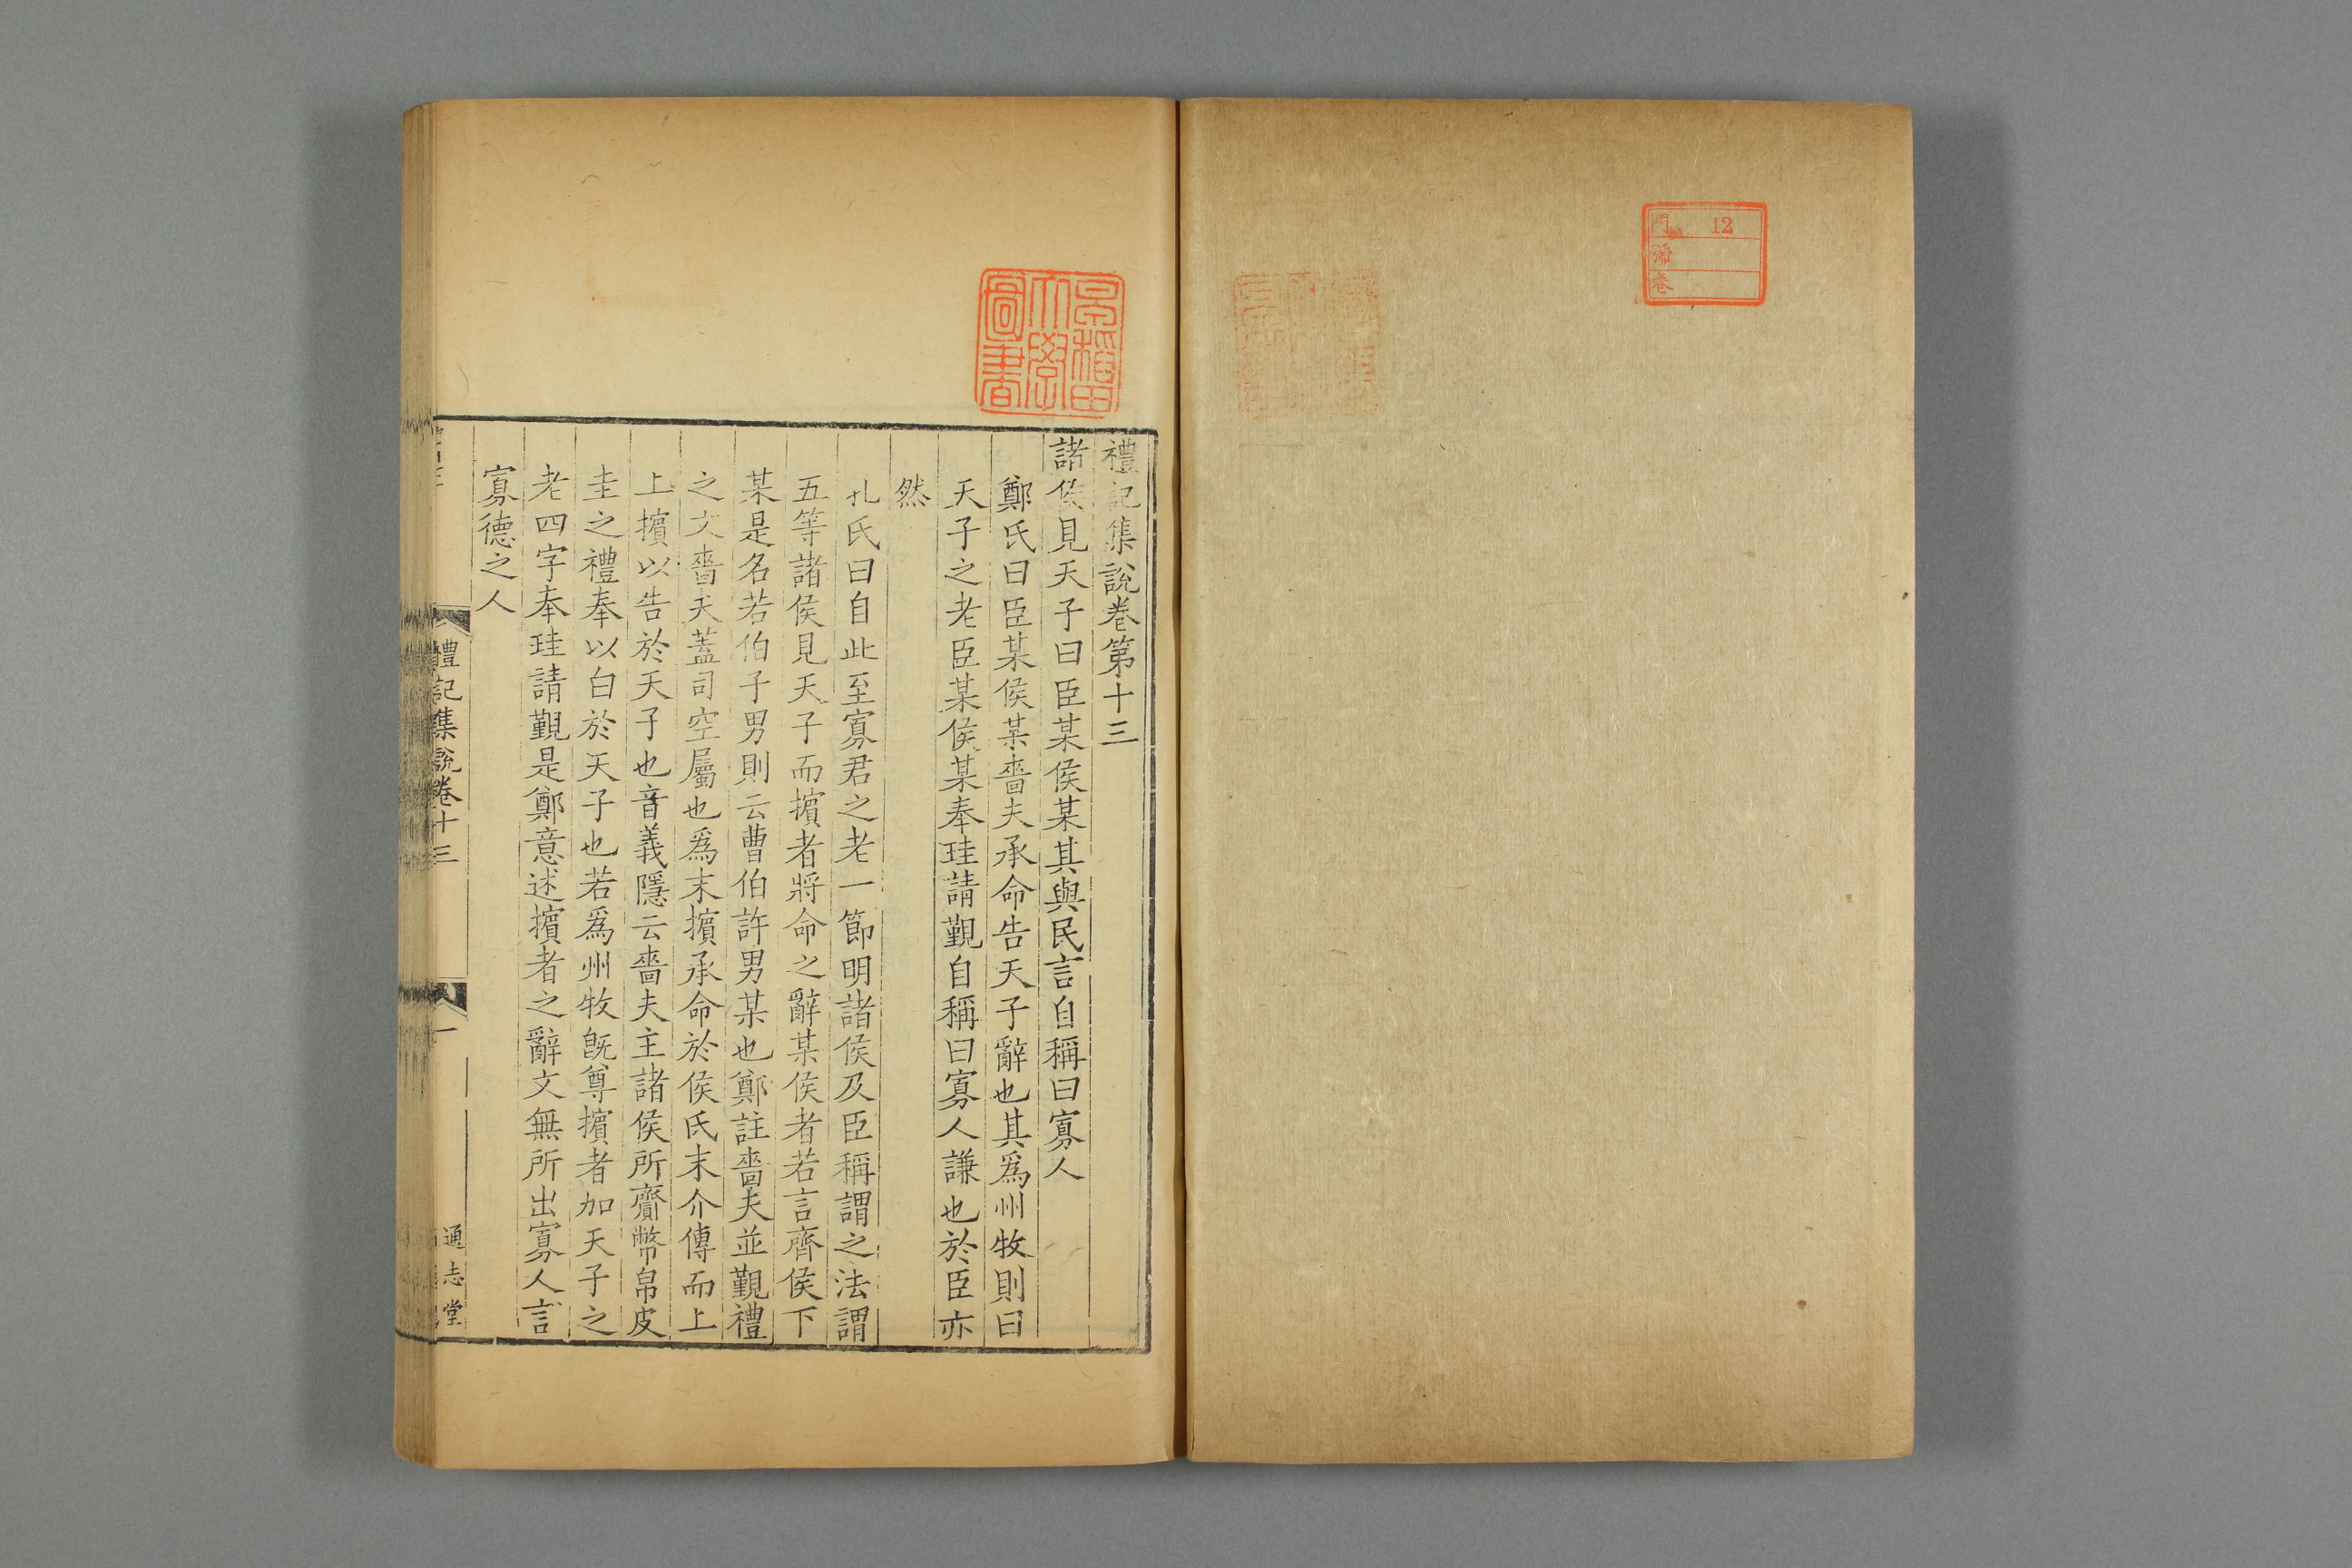 12
門
號
卷
早稲田
大學
圖書
禮記集說卷第十三
諸侯見天子曰臣某侯某其與民言自稱曰寡人
鄭氏曰臣某侯某嗇夫承命告天子辭也其爲州牧則曰
天子之老臣某侯某奉珪請覲自稱曰寡人謙也於臣亦
然
孔氏曰自此至寡君之老一節明諸侯及臣稱謂之法謂
五等諸侯見天子而擯者將命之辭某侯者若言齊侯下
某是名若伯子男則云曹伯許男某也鄭註嗇夫並覲禮
之文嗇夫蓋司空屬也爲末擯承命於侯氏末介傳而上
上擯以告於天子也音義隱云嗇夫主諸侯所齎幣帛皮
圭之禮奉以白於天子也若爲州牧旣尊擯者加天子之
老四字奉珪請覲是鄭意述擯者之辭文無所出寡人言
寡德之人
禮記集說卷十三
一
通志堂